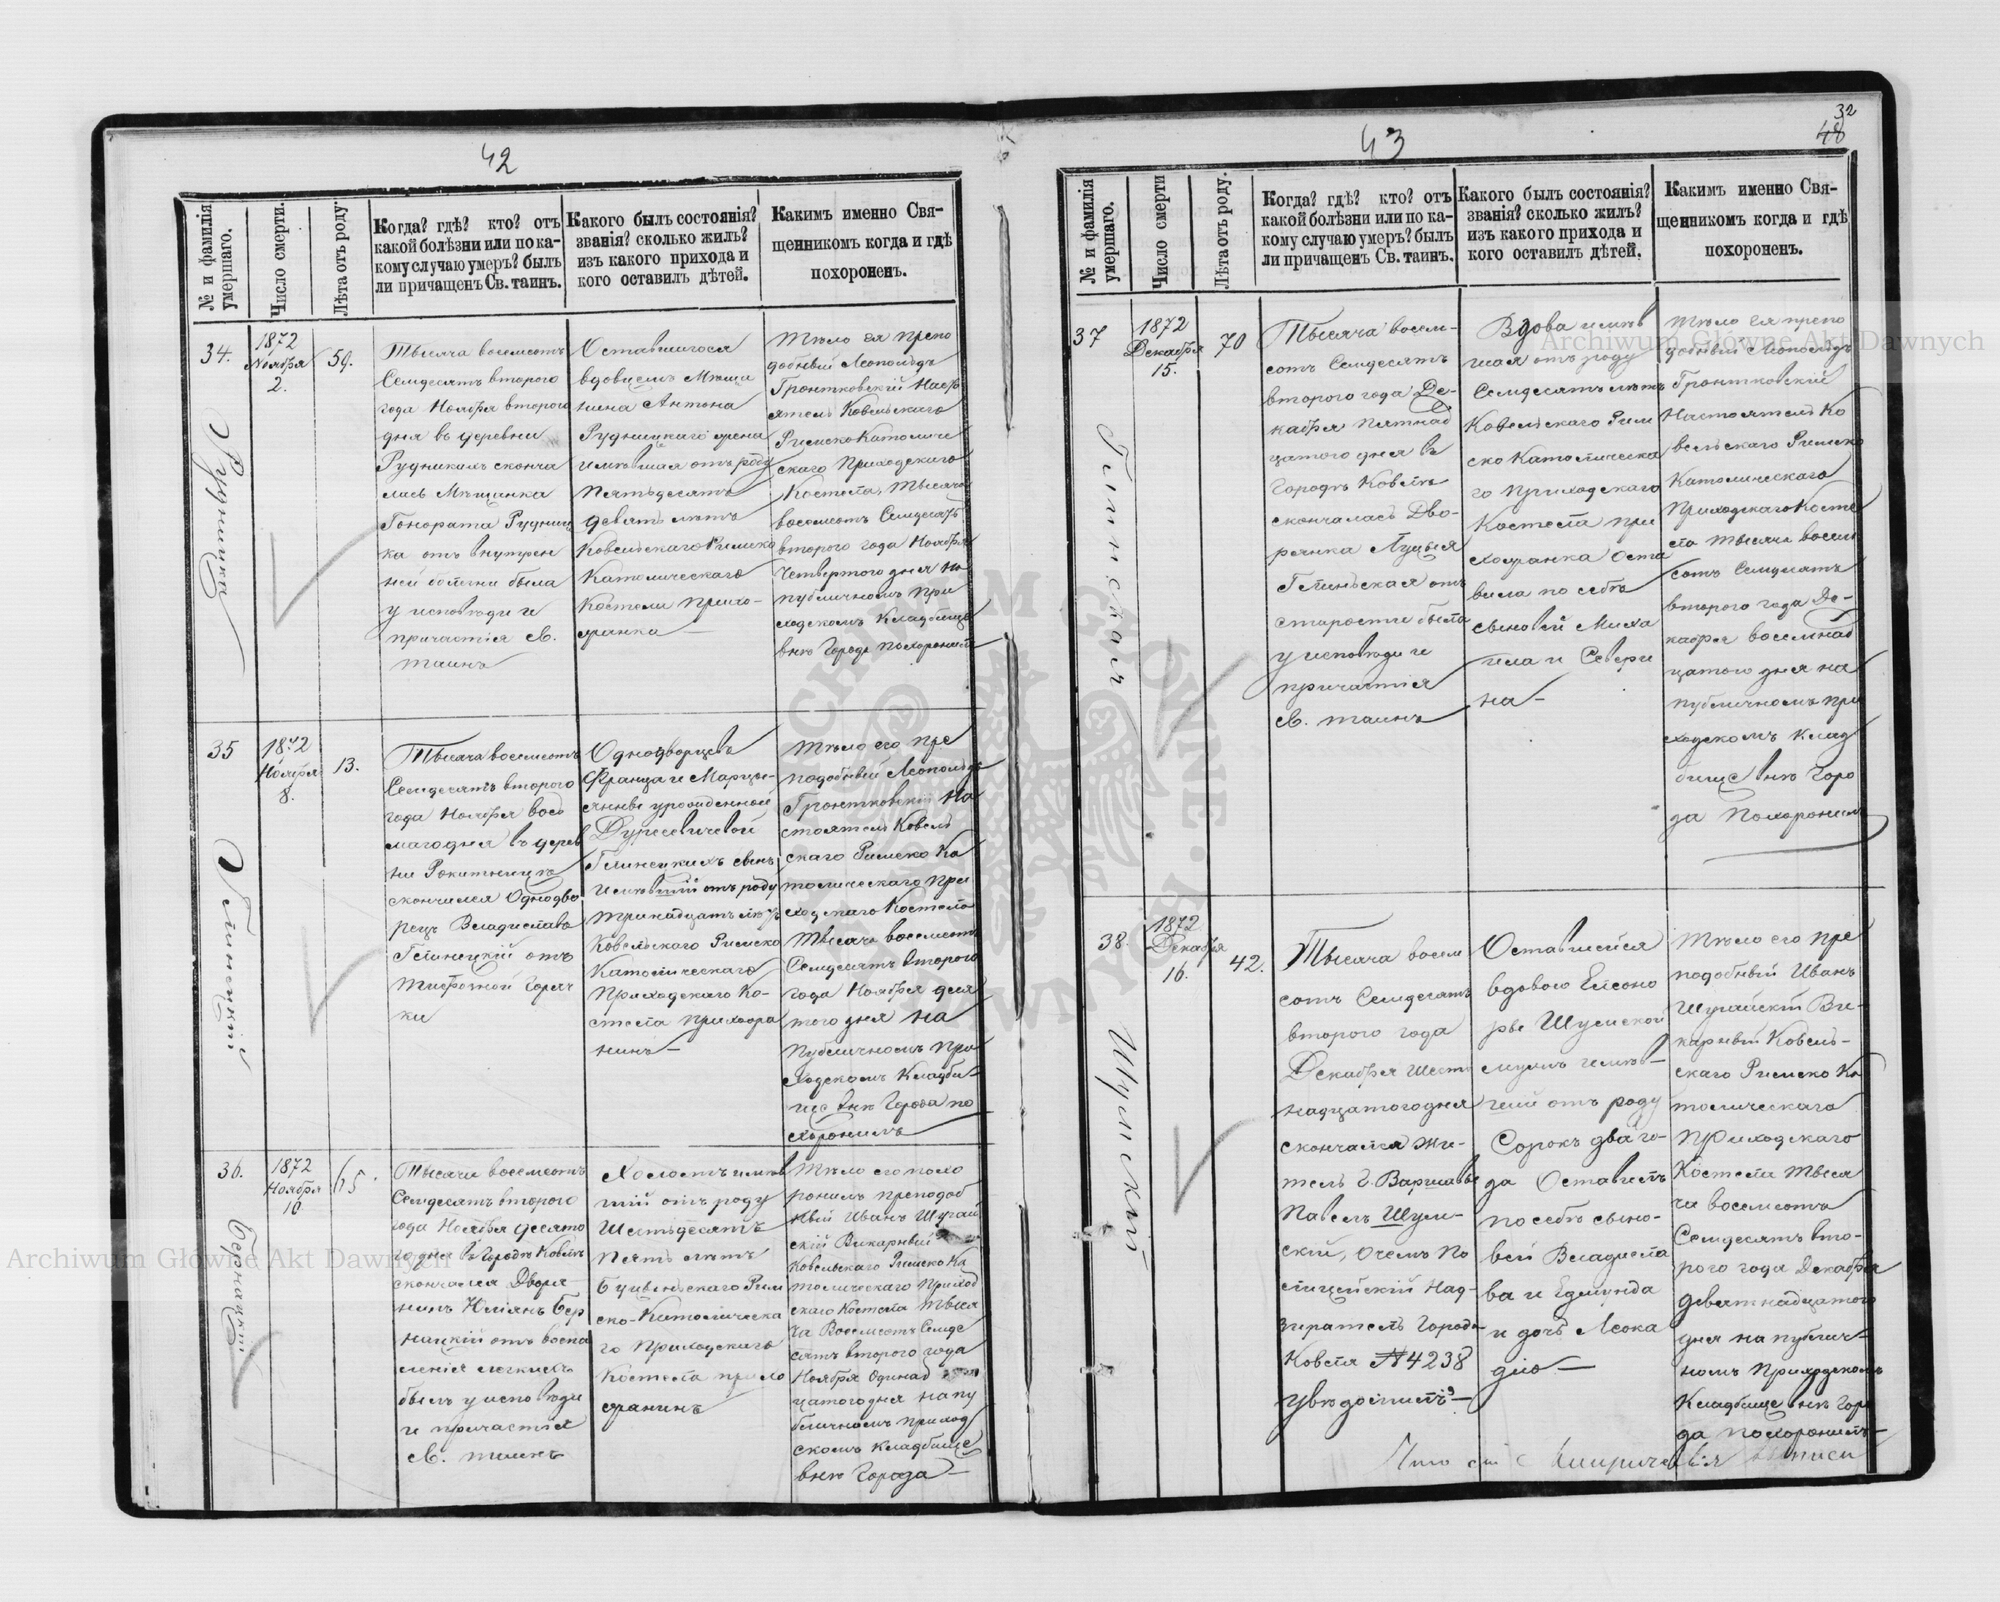 42
№ и фамилія умершаго.
Число смерти.
Лѣта отъ роду.
Когда? гдѣ? кто? отъ
какой болѣзни или по ка-
кому случаю умеръ? былъ
ли причащенъ Св. таинъ.
Какого былъ состоянія?
званія? сколько жилъ?
изъ какого прихода и
кого оставилъ дѣтей.
Какимъ именно Свя-
щенникомъ когда и гдѣ
похороненъ.
34.
Рудницка
1872
Ноября
2.
59.
Тысяча восемсотъ
Семдесятъ второго
года Ноября второго
дня въ деревни
Рудникахъ сконча
лась Мѣщанка
Гонората Рудниц
ка отъ внутрен
ней болезни была
у исповѣди и
причастія Св.
таинъ
Оставшегося
вдовцемъ Мѣща
нина Антона
Рудницкаго жена
имѣвшая отъ роду
Пятьдесятъ
девять лѣтъ
Ковельскаго Римско
Католическаго
Костела прихо-
жанка —
Тѣло ея препо
добный Леопольдъ
Гронтковскій Насто
ятель Ковельскаго
Римско Католиче
скаго Приходскаго
Костела, Тысяча
восемсотъ Семдесятъ
второго года Ноября
Четвертого дня на
публичномъ при
ходскомъ Кладбище
внѣ Города похоронилъ
35
Глинецкій
1872
Ноября
8.
13.
Тысяча восемсотъ
Семдесятъ второго
года Ноября вось
маго дня въ дерев
ни Рокитницкъ
скончался Однодво
рецъ Владиславъ
Глинецкій отъ
тифозной Горяч
ки
Однодворцевъ
Франца и Марцы-
янны урожденной
Глинецкихъ сынъ
имѣвшій отъ роду
тринадцать лѣтъ
Ковельскаго Римско
Католическаго
Приходскаго Ко-
стела прихожа
нинъ —
Тѣло его пре
подобный Леопольдъ
Гронтковскій На
стоятель Ковель
скаго Римско Ка
толическаго при
ходскаго Костела
Тысяча восемсотъ
Семдесятъ второго
года Ноября девя
того дня на
Публичномъ при
ходскомъ Кладби-
ще внѣ Города по
хоронилъ
36.
Бернацкій
1872
Ноября
10
65.
Тысяча восемсотъ
Семдесятъ второго
года Ноября десято
го дня въ Городѣ Ковлѣ
скончался Дворя-
нинъ Юліянъ Бер
нацкій отъ воспа
ленія легкихъ
былъ у исповѣди
и причастія
Св. таинъ
Холостъ имѣв
шій отъ роду
Шестьдесятъ
Пять лѣтъ
Римс
ко-Католическа
го Приходскаго
Костела прихо
жанинъ
Тѣло его похо
ронилъ преподоб
ный Иванъ Шугай
скій Викарный
Ковельскаго Римско Ка
толическаго Приход
скаго Костела Тыся
ча Восемсотъ Семде
сятъ второго года
Ноября Одинад
цатого дня на пу
бличномъ приход
скомъ кладбище
внѣ Города —
32
48
43
№ и фамилія умершаго.
Число смерти
Лѣта отъ роду.
Когда? гдѣ? кто? отъ
какой болѣзни или по ка-
кому случаю умеръ? былъ
ли причащенъ Св. таинъ.
Какого былъ состоянія?
званія? сколько жилъ?
изъ какого прихода и
кого оставилъ дѣтей.
Какимъ именно Свя-
щенникомъ когда и гдѣ
похороненъ.
37
Глинская
1872
Декабря
15.
70
Тысяча восем-
сотъ Семдесятъ
второго года Де-
кабря Пятнад
цатого дня въ
Городѣ Ковлѣ
скончалась Дво-
рянка Луцыя
Глиньская отъ
старости была
у исповѣди и
причастія
Св. таинъ
Вдова имѣв
шая отъ роду
Семдесятъ лѣтъ
Ковельскаго Рим
ско Католическа
го Приходскаго
Костела при
хожанка Оста
вила по себѣ
сыновей Миха
ила и Севери
на —
Тѣло ея препо
добный Леопольдъ
Гронтковскій
Настоятель Ко
вельскаго Римско
Католическаго
Приходскаго Косте
ла Тысяча восем
сотъ Семдесятъ
второго года Де-
кабря восемнад
цатого дня на
публичномъ при
ходскомъ клад
бище внѣ Горо
да Похоронилъ
38.
Шумскій
1872
Декабря
16.
42.
Тысяча восем
сотъ Семдесятъ
второго года
Декабря Шест
надцатого дня
скончался жи-
тель Г. Варшавы
Павелъ Шум-
скій, о чемъ По
лицейскій Над-
зиратель Города
Ковля № 4238
увѣдомилъ —
Оставшейся
вдовою Елеоно
ры Шумской
мужъ имѣв-
шій отъ роду
Сорокъ два го-
да Оставилъ
по себѣ сыно-
вей Владисла
ва и Едмунда
и дочь Леока
дію —
Тѣло его пре
подобный Иванъ
Шугайскій Ви-
карный Ковель-
скаго Римско Ка
толическаго
Приходскаго
Костела Тыся
ча восемсотъ
Семдесятъ вто-
рого года Декабря
девятнадцатого
дня на публич-
номъ Приходскомъ
Кладбище внѣ Горо
да похоронилъ —
Archiwum Główne Akt Dawnych
Archiwum Główne Akt Dawnych